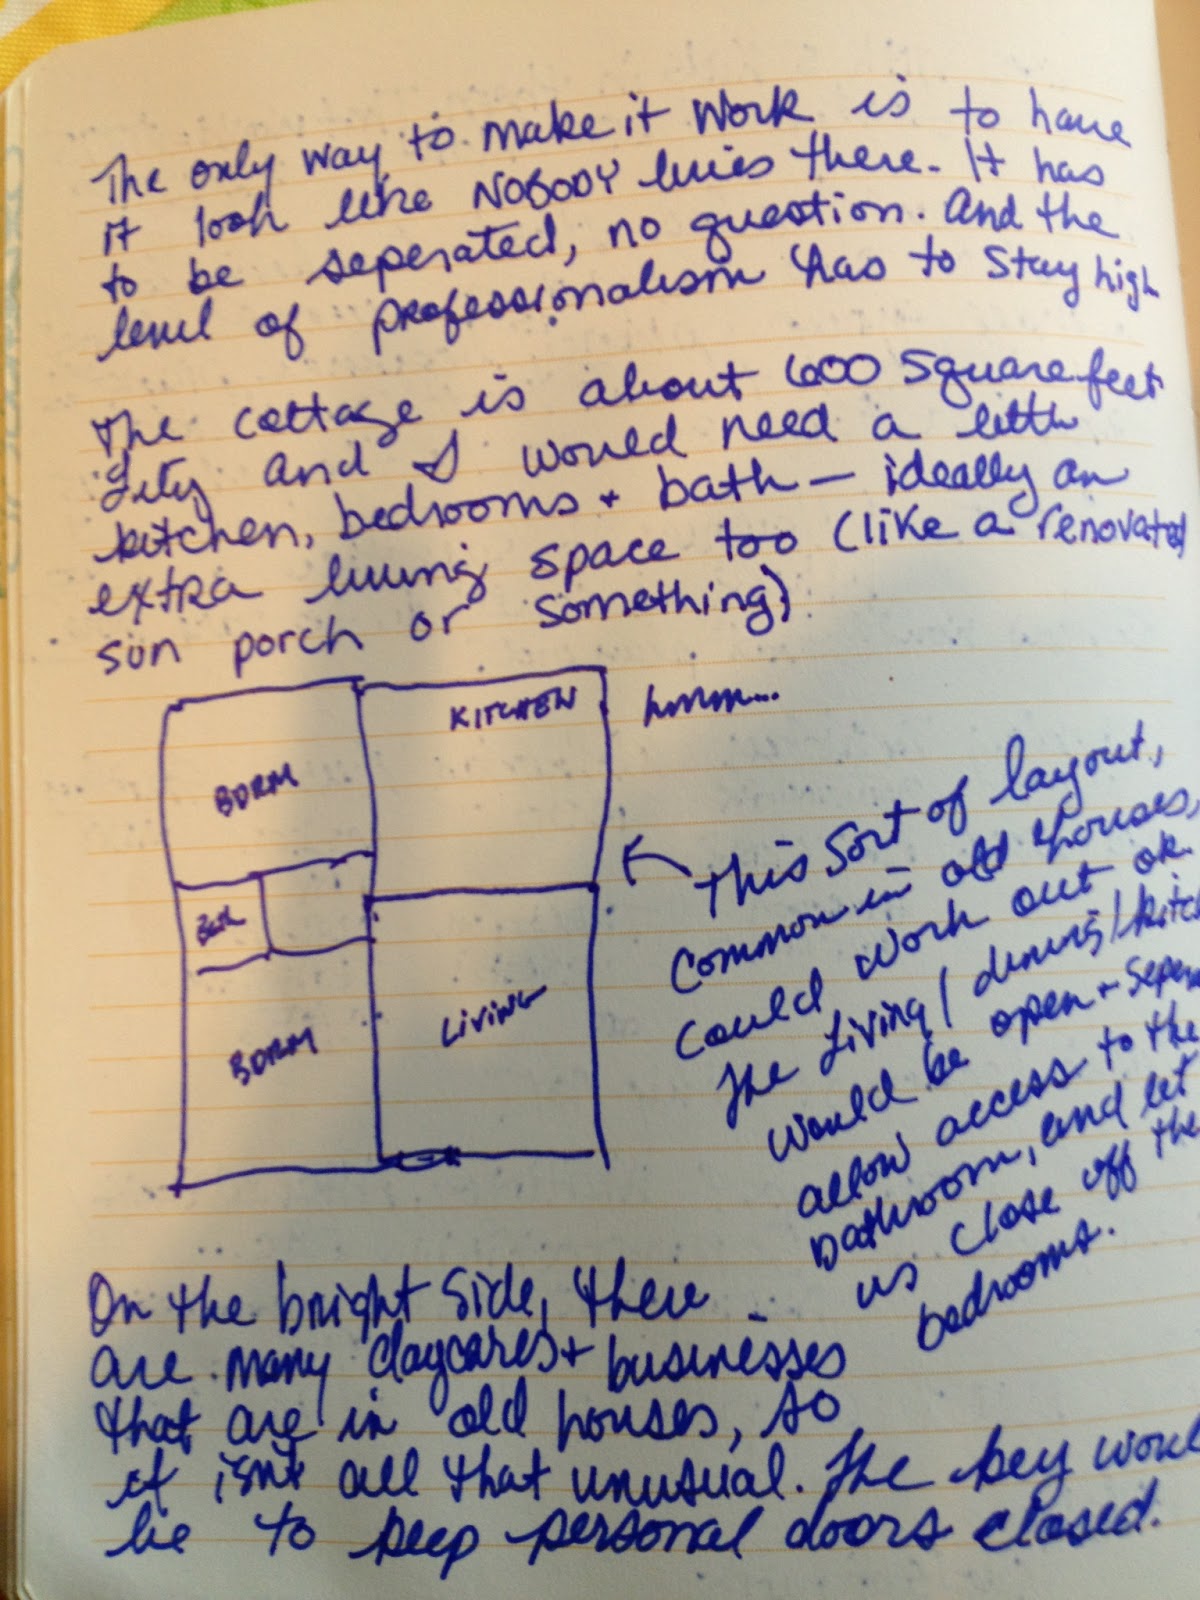 The only way to make it work is to have
it look like NOBODY lives there. It has
to be seperated, no question. And the
level of professionalism has to stay high
The cottage is about 600 square feet
and I would need a little
kitchen, bedrooms + bath — ideally an
extra living space too (like a renovated
sun porch or something)
KITCHEN
hmmm...
BDRM
Bath
LIVING
BDRM
This sort of layout,
common in old houses,
could work out ok.
The living/dining/kitc
would be open + seper
allow access to the
bathroom, and let
us close off the
bedrooms.
On the bright side, there
are many daycares + businesses
that are in old houses, so
it isn't all that unusual. The key woul
be to keep personal doors closed.